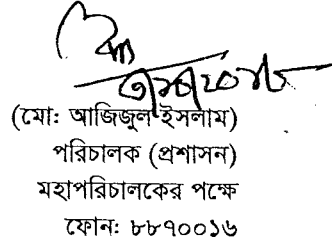 (মো: আজিজুল ইসলাম)
পরিচালক (প্রশাসন)
মহাপরিচালকের পক্ষে
ফোন: ৮৮৭০০১৬